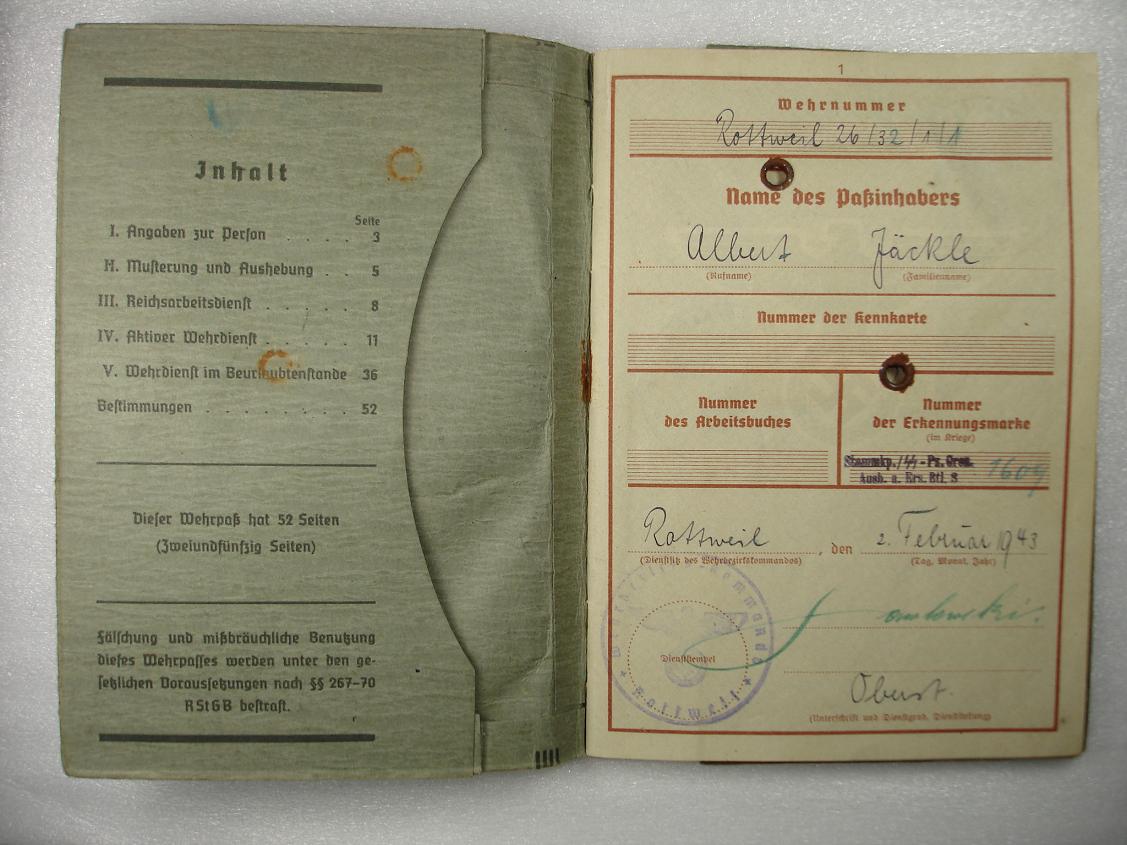 Inhalt
Seite
I. Angaben zur Person . . . . 3
II. Musterung und Aushebung . . 5
III. Reichsarbeitsdienst . . . . . 8
IV. Aktiver Wehrdienst . . . . . 11
V. Wehrdienst im Beurlaubtenstande 36
Bestimmungen . . . . . . . . 52
Dieser Wehrpaß hat 52 Seiten
(Zweiundfünfzig Seiten)
Fälschung und mißbräuchliche Benutzung
dieses Wehrpasses werden unter den ge-
setzlichen Voraussetzungen nach §§ 267-70
RStGB bestraft.
1
Wehrnummer
Rottweil 26/32/1/1
Name des Paßinhabers
Albert Jäckle
(Rufname) (Familienname)
Nummer der Kennkarte
Nummer
des Arbeitsbuches
Nummer
der Erkennungsmarke
(im Kriege)
Stammkp./SS-Pz. Gren. 1609
Ausb. u. Ers. Btl. 8
Rottweil, den 2. Februar 1943
(Dienstsitz des Wehrbezirkskommandos) (Tag, Monat, Jahr)
Wehrbezirkskommando
Rottweil
Dienststempel
Oberst.
(Unterschrift und Dienstgrad, Dienststellung)